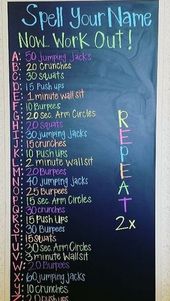 Spell Your Name
Now... Work Out!
A: 50 jumping jacks
B: 20 crunches
C: 30 squats
D: 15 push ups
E: 1 minute wall sit
F: 10 Burpees
G: 20 sec. Arm Circles
H: 20 squats
I: 30 jumping jacks
J: 15 crunches
K: 10 push ups
L: 2 minute wall sit
M: 20 Burpees
N: 40 jumping jacks
O: 25 Burpees
P: 15 sec. Arm Circles
Q: 30 crunches
R: 15 push ups
S: 30 Burpees
T: 15 squats
U: 30 sec Arm circles
V: 3 minute wall sit
W: 20 Burpees
X: 60 jumping jacks
Y: 10 crunches
Z: 20 push ups
REPEAT
2x